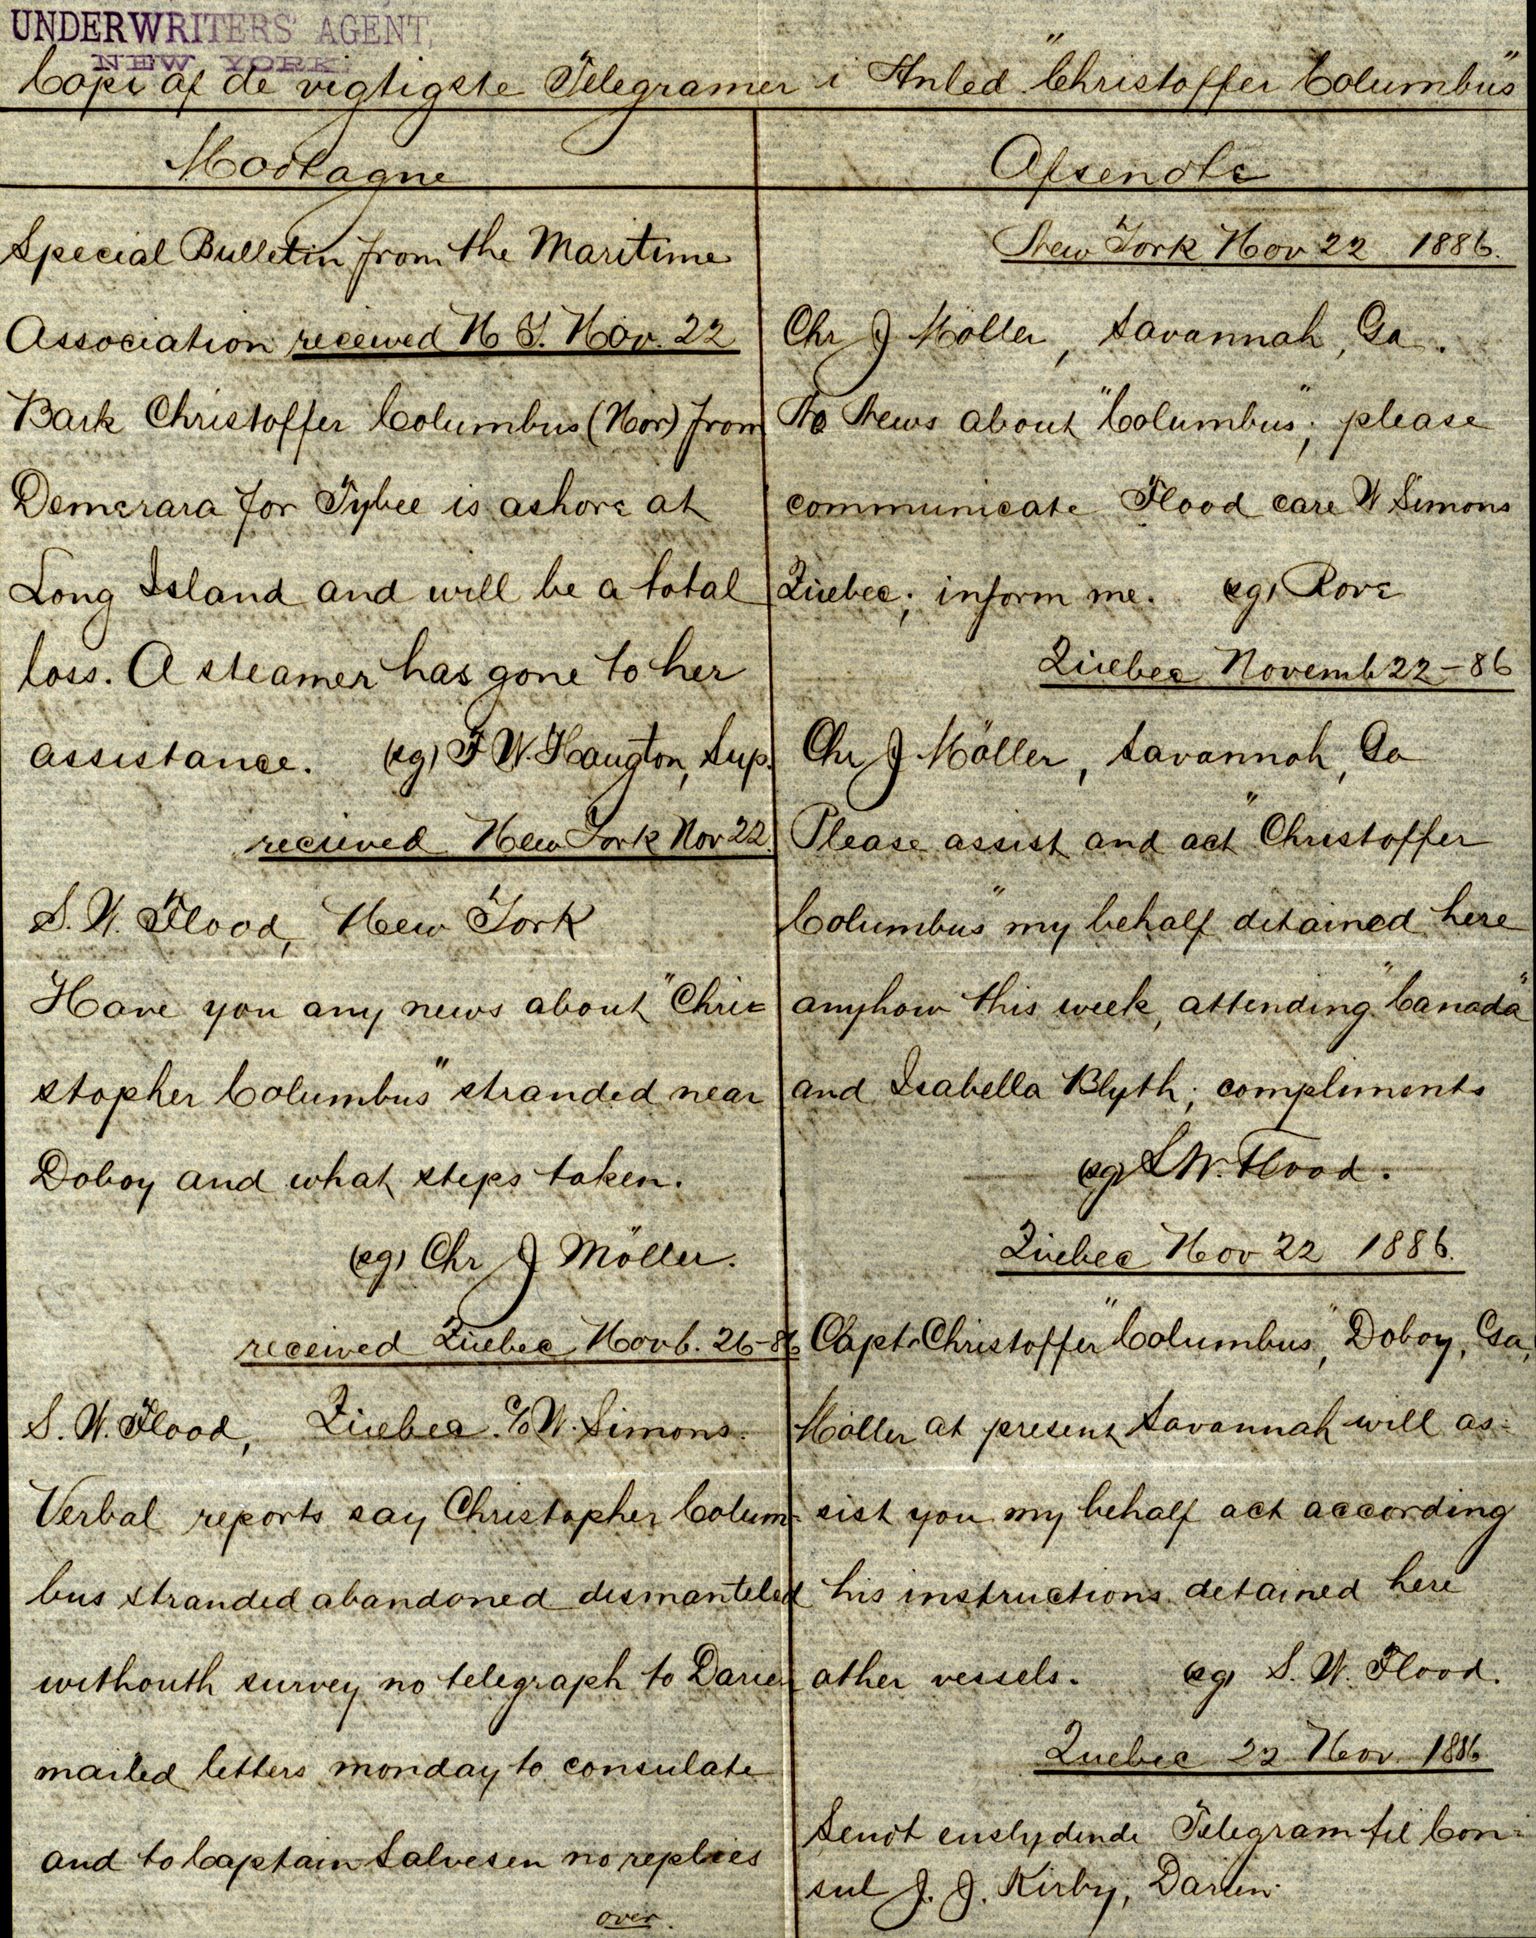 UNDERWRITERS' AGENT,
NEW YORK.
Copi af de vigtigste Telegramer i Anled. "Christoffer Columbus"
Modtagne
Special Bulletin from the Maritime
Association received N Y. Nov. 22
Bark Christoffer Columbus (Nor) from
Demerara for Tybee is ashore at
Long Island and will be a total
loss. A steamer has gone to her
assistance. (sg) F W. Haugton, Sup.
recieved New York Nov 22.
S. W. Flood, New York
Have you any news about "Chris
stopher Columbus" stranded near
Doboy and what steps taken.
(sg) Chr J Möller.
received Quebec Novb. 26-86
S. W. Flood, Quebec. c/o W. Simons.
Verbal reports say Christopher Colum=
bus stranded abandoned dismanteled
withouth survey no telegraph to Darien
mailed letters monday to consulate
and to Captain Salvesen no replies
over.
Afsendte
New York Nov 22 1886.
Chr J Möller, Savannah, Ga.
No News about "Columbus"; please
communicate Flood care W Simons
Quebec; inform me. (sg) Rove
Quebec Novemb 22-86
Chr J Möller, Savannah, Ga
Please assist and act "Christoffer
Columbus" my behalf detained here
anyhow this week, attending "Canada"
and Isabella Blyth; compliments
(sg) S W. Flood.
Quebec Nov 22 1886.
Capt. Christoffer "Columbus", Doboy, Ga,
Möller at present Savannah will as=
sist you my behalf act according
his instructions detained here
other vessels. (sg) S. W. Flood.
Quebec 22 Nov. 1886
Sendt enslydende Telegram til Con=
sul J. J. Kirby, Darien.